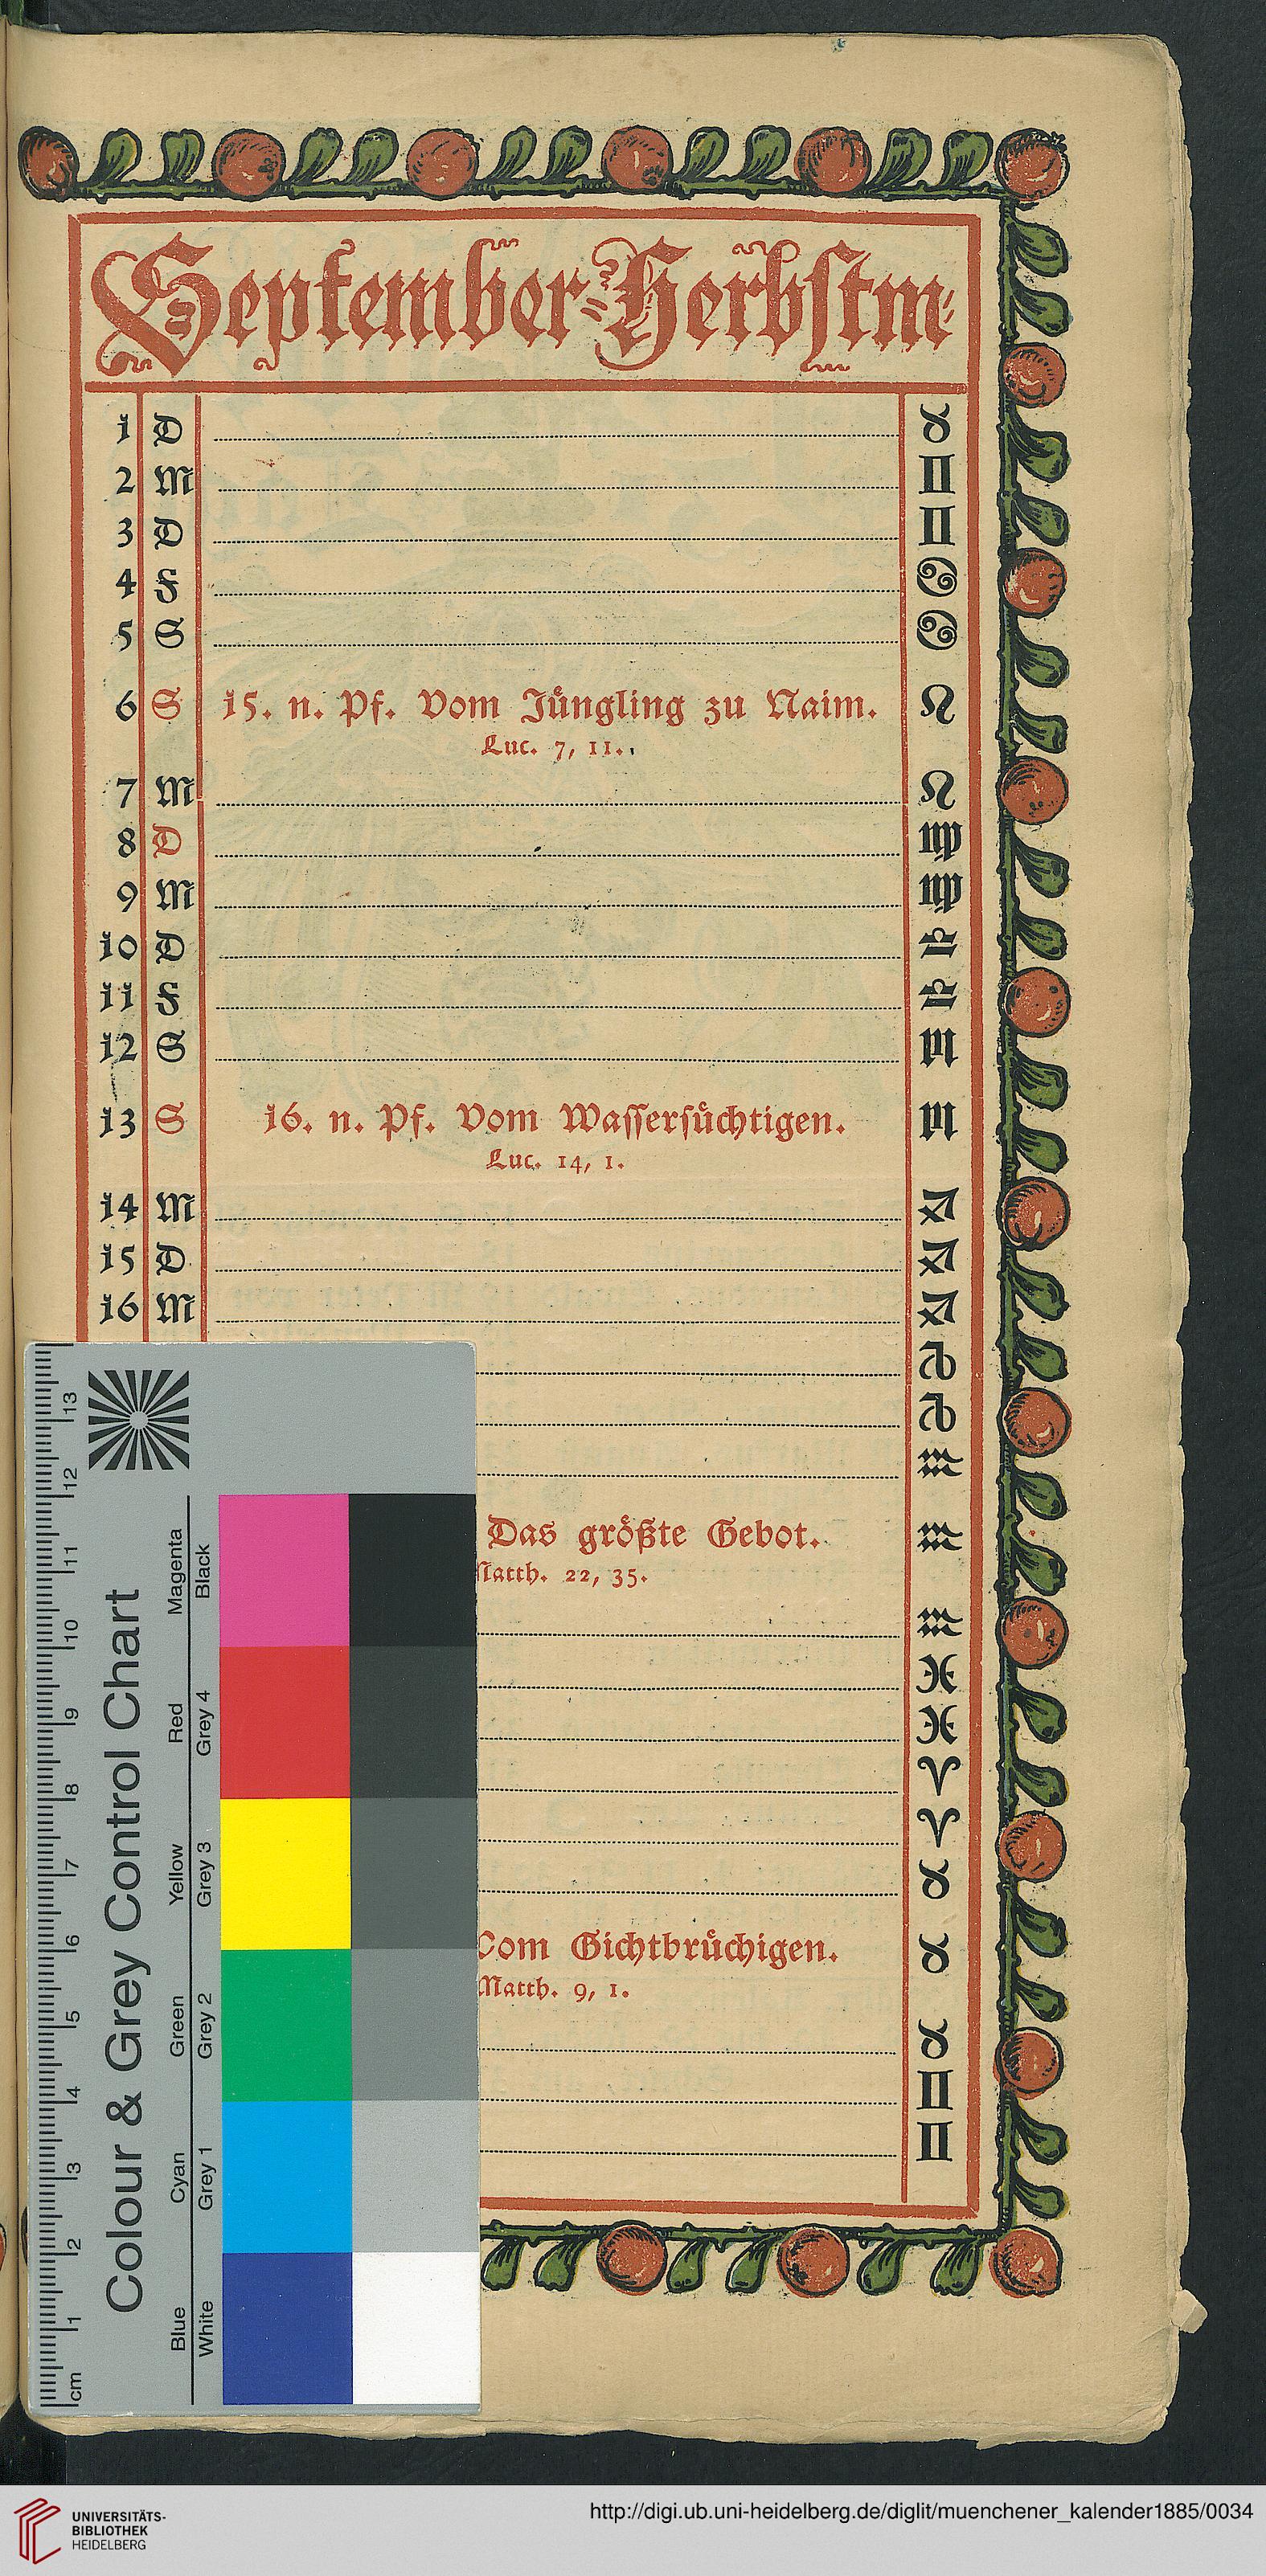 September-Herbstm-
1 D ♉
2 M ♊
3 D ♊
4 F ♋
5 S ♋
6 S 15. n. Pf. Vom Jüngling zu Naim. ♌
Luc. 7, 11.
7 M ♌
8 D ♍
9 M ♍
10 D ♎
11 F ♎
12 S ♏
13 S 16. n. Pf. Vom Wasserſüchtigen. ♏
Luc. 14, 1.
14 M ♐
15 D ♐
16 M ♐
♑
♑
♒
Das größte Gebot. ♒
Matth. 22, 35.
♒
♓
♓
♈
♈
♉
Vom Gichtbrüchigen. ♉
Matth. 9, 1.
♉
♊
♊
Colour & Grey Control Chart
Magenta Red Yellow Green Cyan Blue
Black Grey 4 Grey 3 Grey 2 Grey 1 White
cm 1 2 3 4 5 6 7 8 9 10 11 12 13
UNIVERSITÄTS-
BIBLIOTHEK
HEIDELBERG
http://digi.ub.uni-heidelberg.de/diglit/muenchener_kalender1885/0034